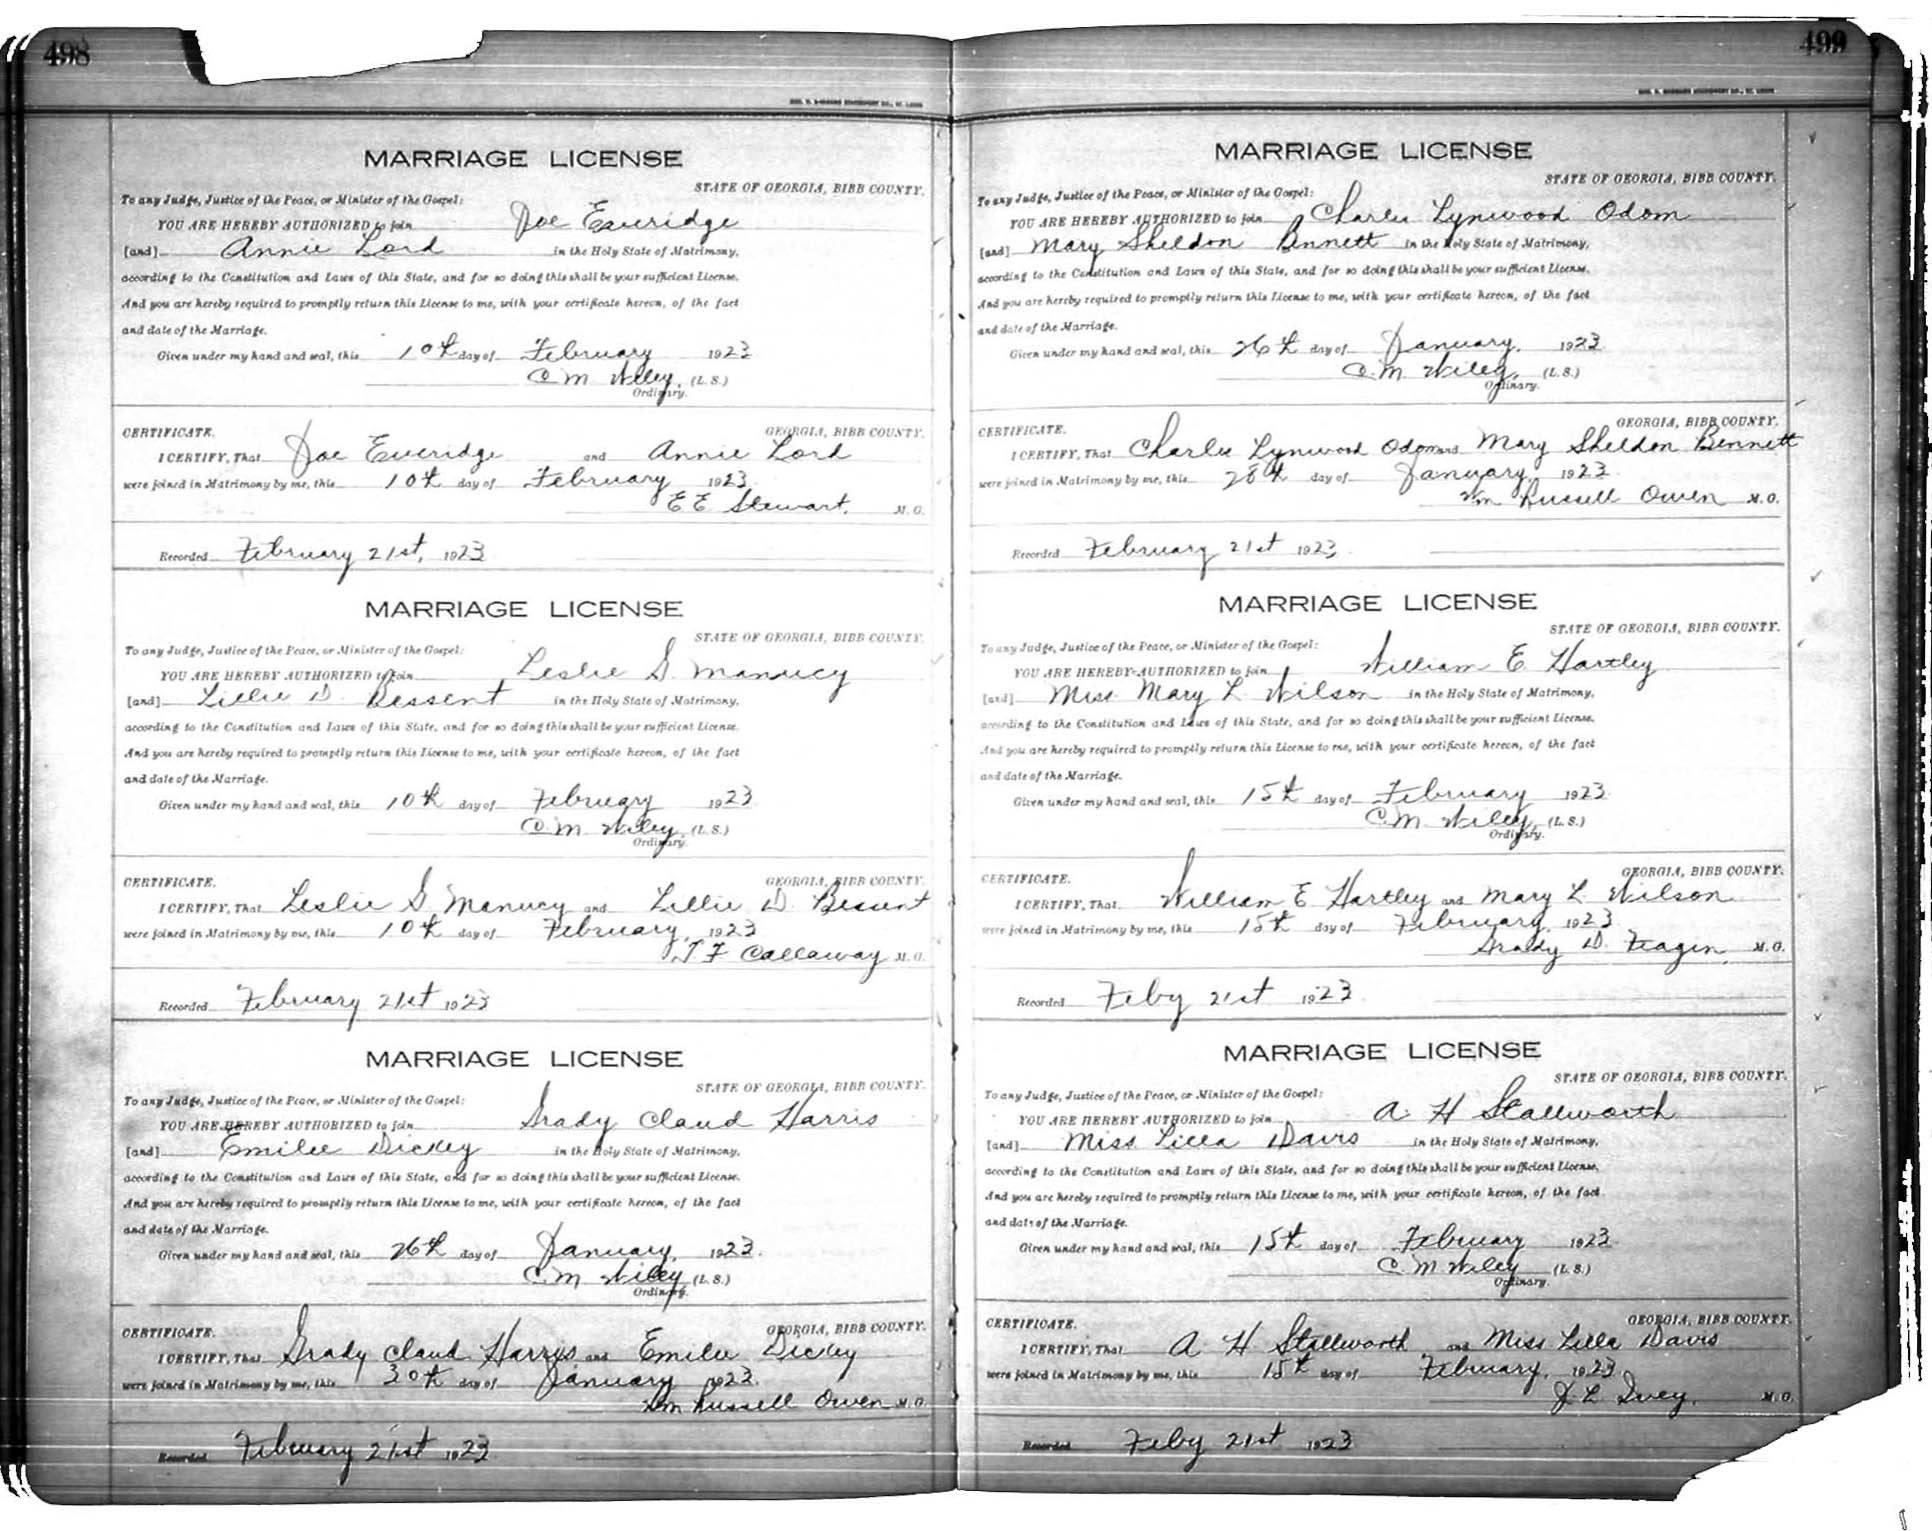 498
MARRIAGE LICENSE
STATE OF GEORGIA, BIBB COUNTY.
To any Judge, Justice of the Peace, or Minister of the Gospel:
YOU ARE HEREBY AUTHORIZED to join Joe Everidge
[and] Annie Lord in the Holy State of Matrimony,
according to the Constitution and Laws of this State, and for so doing this shall be your sufficient License.
And you are hereby required to promptly return this License to me, with your certificate hereon, of the fact
and date of the Marriage.
Given under my hand and seal, this 10th day of February 1923
C. M. Wiley, (L. S.)
Ordinary.
CERTIFICATE. GEORGIA, BIBB COUNTY.
I CERTIFY, That Joe Everidge and Annie Lord
were joined in Matrimony by me, this 10th day of February 1923
E E Stewart. M. G.
Recorded February 21st, 1923
MARRIAGE LICENSE
STATE OF GEORGIA, BIBB COUNTY.
To any Judge, Justice of the Peace, or Minister of the Gospel:
YOU ARE HEREBY AUTHORIZED to join Leslie G. Manucy
[and] Lillie D. Bessent in the Holy State of Matrimony,
according to the Constitution and Laws of this State, and for so doing this shall be your sufficient License.
And you are hereby required to promptly return this License to me, with your certificate hereon, of the fact
and date of the Marriage.
Given under my hand and seal, this 10th day of February 1923
C. M. Wiley, (L. S.)
Ordinary.
CERTIFICATE. GEORGIA, BIBB COUNTY.
I CERTIFY, That Leslie G Manucy and Lillie D. Bessent
were joined in Matrimony by me, this 10th day of February, 1923
T F Callaway M. G.
Recorded February 21st 1923
MARRIAGE LICENSE
STATE OF GEORGIA, BIBB COUNTY.
To any Judge, Justice of the Peace, or Minister of the Gospel:
YOU ARE HEREBY AUTHORIZED to join Grady Claud Harris
[and] Emilee Dickey in the Holy State of Matrimony,
according to the Constitution and Laws of this State, and for so doing this shall be your sufficient License.
And you are hereby required to promptly return this License to me, with your certificate hereon, of the fact
and date of the Marriage.
Given under my hand and seal, this 26th day of January, 1923.
C. M Wiley (L. S.)
Ordinary.
CERTIFICATE. GEORGIA, BIBB COUNTY.
I CERTIFY, That Grady Claud Harris and Emilee Dickey
were joined in Matrimony by me, this 30th day of January 1923.
Wm Russell Owen M. G.
Recorded February 21st 1923
499
MARRIAGE LICENSE
STATE OF GEORGIA, BIBB COUNTY.
To any Judge, Justice of the Peace, or Minister of the Gospel:
YOU ARE HEREBY AUTHORIZED to join Charles Lynwood Odom
[and] Mary Sheldon Bennett in the Holy State of Matrimony,
according to the Constitution and Laws of this State, and for so doing this shall be your sufficient License.
And you are hereby required to promptly return this License to me, with your certificate hereon, of the fact
and date of the Marriage.
Given under my hand and seal, this 26th day of January, 1923
C. M. Wiley, (L. S.)
Ordinary.
CERTIFICATE. GEORGIA, BIBB COUNTY.
I CERTIFY, That Charles Lynwood Odom and Mary Sheldon Bennett
were joined in Matrimony by me, this 28th day of January, 1923
Wm Russell Owen M. G.
Recorded February 21st 1923
MARRIAGE LICENSE
STATE OF GEORGIA, BIBB COUNTY.
To any Judge, Justice of the Peace, or Minister of the Gospel:
YOU ARE HEREBY AUTHORIZED to join William E. Hartley
[and] Miss Mary L Wilson in the Holy State of Matrimony,
according to the Constitution and Laws of this State, and for so doing this shall be your sufficient License.
And you are hereby required to promptly return this License to me, with your certificate hereon, of the fact
and date of the Marriage.
Given under my hand and seal, this 15th day of February 1923
C. M. Wiley, (L. S.)
Ordinary.
CERTIFICATE. GEORGIA, BIBB COUNTY.
I CERTIFY, That William E Hartley and Mary L Wilson
were joined in Matrimony by me, this 15th day of February, 1923
Grady D. Feagin M. G.
Recorded Feby 21st 1923
MARRIAGE LICENSE
STATE OF GEORGIA, BIBB COUNTY.
To any Judge, Justice of the Peace, or Minister of the Gospel:
YOU ARE HEREBY AUTHORIZED to join A. H Stallworth
[and] Miss Lilla Davis in the Holy State of Matrimony,
according to the Constitution and Laws of this State, and for so doing this shall be your sufficient License.
And you are hereby required to promptly return this License to me, with your certificate hereon, of the fact
and date of the Marriage.
Given under my hand and seal, this 15th day of February 1923
C M Wiley (L. S.)
Ordinary.
CERTIFICATE. GEORGIA, BIBB COUNTY.
I CERTIFY, That A H Stallworth and Miss Lilla Davis
were joined in Matrimony by me, this 15th day of February, 1923
J. L. Ivey. M. G.
Recorded Feby 21st 1923